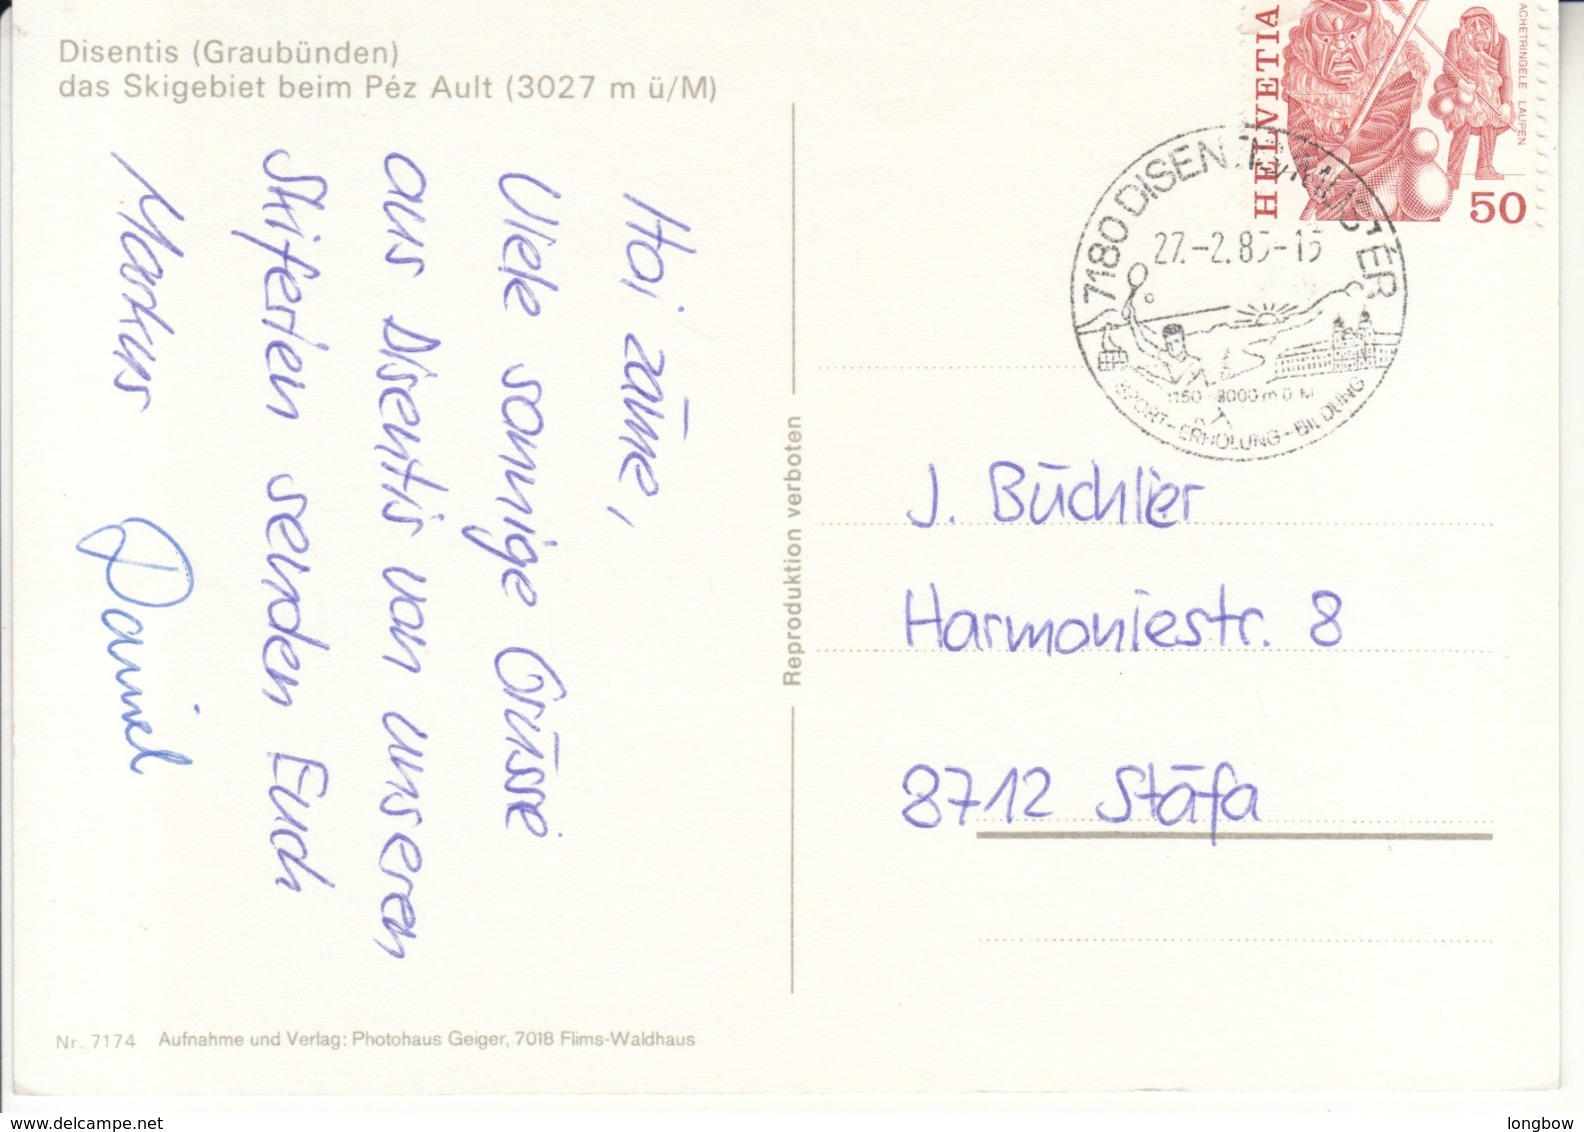 Disentis (Graubünden)
das Skigebiet beim Péz Ault (3027 m ü/M)
Hoi zäme,
Viele sonnige Grüsse
aus Disentis von unseren
Skiferien senden Euch
Markus Daniel
Nr. 7174 Aufnahme und Verlag: Photohaus Geiger, 7018 Flims-Waldhaus
Reproduktion verboten
HELVETIA
ACHETRINGELE LAUPEN
50
7180 DISENTIS/MUSTER
27.-2.85-15
1150 3000 m ü M
SPORT-ERHOLUNG-BILDUNG
J. Büchler
Harmoniestr. 8
8712 Stäfa
longbow